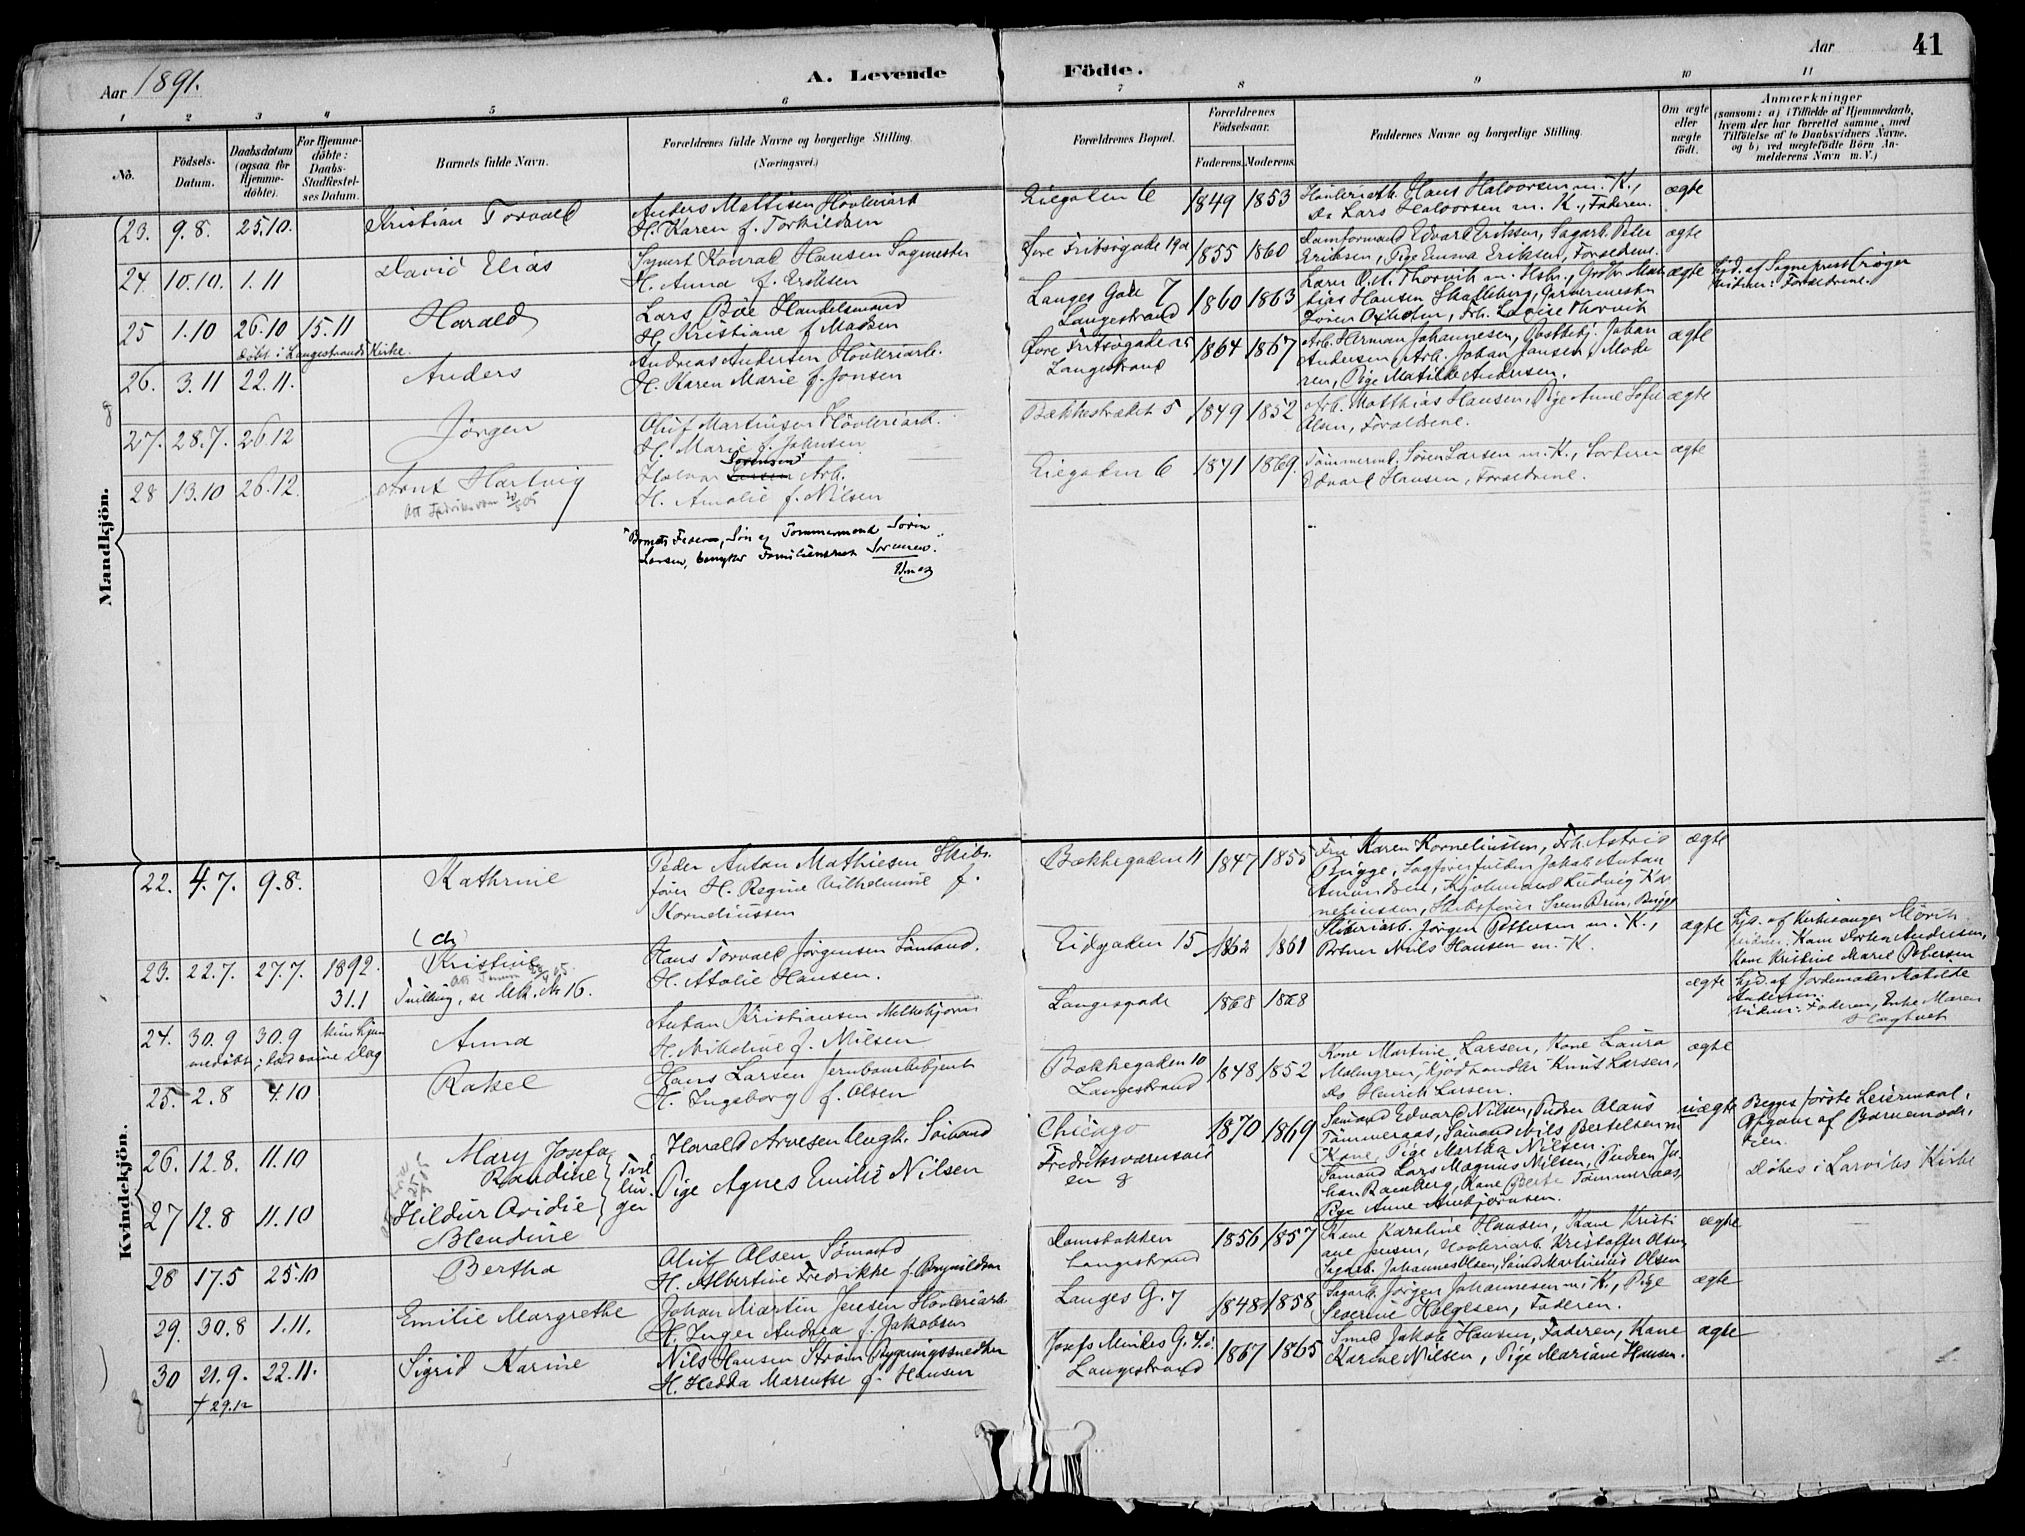 Aar 1891.
A. Levende
Födte.
Aar
41
1 2 3 4 5 6 7 8 9 10 11
No.
Födsels-
Datum.
Daabsdatum
(ogsaa for
Hjemme-
döbte).
For Hjemme-
döbte:
Daabs-
Stadfæstel-
ses Datum.
Barnets fulde Navn.
Forældrenes fulde Navne og borgerlige Stilling.
(Næringsvei.)
Forældrenes Bopæl.
Forældrenes
Födselsaar.
Faderens. Moderens.
Faddernes Navne og borgerlige Stilling.
Om ægte
eller
uægte
födt.
Anmærkninger
(saasom: a) i Tilfælde af Hjemmedaab,
hvem der har forrettet samme, med
Tilföielse af to Daabsvidners Navne,
og b) ved uægtefödte Börn An-
melderens Navn m. V.)
Mandkjön.
23. 9.8. 25.10. Kristian Torvald
Anders Mathisen Høvleriarb
H. Karen f. Torkildsen
Eiegaden 6 1849 1853
Høvleriarb. Hans Halvorsen m. K.,
Do Lars Halvorsen m. K., Faderen.
ægte
24 10.10. 1.11 David Elias
Syvert Konrad Hansen Sagmester
H. Anna f. Eriksen
Øvre Fritsøgade 19a 1855 1860
Damformand Edvard Eriksen, Sagarb. Peter
Eriksen, Pige Emma Eriksen, Forældrene.
ægte
25 1.10 26.10 15.11 Harald
døbt i Langestrands Kirke.
Lars Bøe Handelsmand
H. Kristiane f. Madsen
Langes Gade 7
Langestrand
1860 1863
Lærer O. A. Thorvik m. Hstr., Grdbr. Mat
tias Hansen Skalleberg, Garvermester
Søren Oxholm, Frk. Lovise Thorvik
ægte
Hjd. af Sogneprest Crøger
Vidner: Forældrene.
26. 3.11 22.11. Anders
Andreas Andersen Høvleriarb.
H. Karen Marie f. Jonsen
Øvre Fritsøgade 25
Langestrand
1864 1867
Arb. Herman Johannesen, Johan
Andersen, Arb. Johan Jansen, Mode
ren, Pige Matilde Andersen.
ægte
27. 28.7. 26.12 Jørgen
Oluf Martinsen Høvleriarb.
H. Marie f. Johnsen
Bækkestrædet 5 1849 1852
Arb. Matthias Hansen, Pige Anne Sofie
Olsen, Forældrene.
ægte
28 13.10 26.12. Arnt Hartvig
Sorensen
Halvor Larsen Arb.
H. Amalie f. Nilsen
Eiegaden 6 1871 1869.
Tømmermd. Søren Larsen m. K., Sorterer
Edvard Hansen, Forældrene.
ægte
"Barnets Fader, Søn af Tømmermand Søren
Larsen, benytter Familienavnet Sorensen."
Kvindekjön.
22. 4.7. 9.8. Kathrine
Peder Antan Mathiesen Skibs-
fører H. Regine Vilhelmine f.
Korneliussen
Bækkegaden 11 1847 1855
Fru Karen Korneliussen, Frk. Astrid
Brigge, Sagførerfuldm. Jakob Antan
Amundsen, Kjøbmand Ludvig Kor
neliussen, Skibsfører Sven Brun Brigge
ægte
23. 22.7. 27.7. 1892.
31.1
(Ch)
Kristine
Tvilling, se Mk. No 16.
Hans Torvald Jørgensen Sømand.
H. Atalie Hansen.
Eidgaden 15 1862 1861
Sliberiarb. Jørgen Pettersen m. K.,
Portner Niils Hansen m. K.
ægte
Hjd. af Kirkesanger Mörch
Vidner: Kone Dorthea Andersen,
Kone Kristine Marie Petersen
24. 30.9 30.9 kun hjem
medøbt; død samme Dag
Anna
Antan Kristiansen Melkekjører
H. Nikoline f. Nilsen
Langesgade 1868 1868
ægte
Hjd. af Jordemoder Matilde
Andersen
Vidner: Faderen, Enke Maren
25. 2.8 4.10 Rakel
Hans Larsen Jernbanebetjent
H. Ingeborg f. Olsen
Bækkegaden 10
Langestrand
1848 1852
Kone Martine Larsen, Kone Laura
Malmgren, Kjødhandler Knut Larsen,
Do Henrik Larsen.
ægte
26. 12.8. 11.10 Mary Josefa
Randine
27 12.8 11.10 Hildur Ovidie
Blendine
Tvil
lin
ger
Harald Arvesen Ungk. Sømand
Pige Agnes Emilie Nilsen
Chicago
Fredriksværnsvei
en 8
1870 1869
Sømand Edvard Nilsen, Pudser Olaus
Tømmeraas, Sømand Nils Bertelsen m
Kone, Pige Martha Nilsen.
Sømand Lars Magnus Nilsen, Pudser Jo
han Ramberg, Kone Berte Tømmeraas,
Pige Anne Anbjørnsen.
uægte
Begges første Leiermaal.
Opgave af Barnemode-
ren.
Døbes i Larviks Kirke
28 17.5 25.10 Bertha
Oluf Olsen Sømand
H. Albertine Fredrikke f. Brynildsen
Damsbakken
Langestrand
1856 1857
Kone Karoline Hansen, Kone Kristi
ane Jensen, Høvleriarb. Kristoffer Olsen,
Sagarb. Johannes Olsen, Sømd Martinius Olsen
ægte
29. 30.8 1.11. Emilie Margrethe
Johan Martin Jensen Høvleriarb
H. Inger Andrea f. Jakobsen
Langes G. 7 1848 1858
Sagarb. Jørgen Johannesen m. K., Pige
Severine Helgesen, Faderen.
ægte
30 21.9. 22.11. Sigrid Karine
† 29.12
Nils Hansen Strøm Bygningssnedker
H. Hedda Marentse f. Hansen
Josefs Mindes G. 4.
Langestrand
1867 1865
Smed Jakob Hansen, Faderen, Kone
Karine Nilsen, Pige Mariane Hansen.
ægte